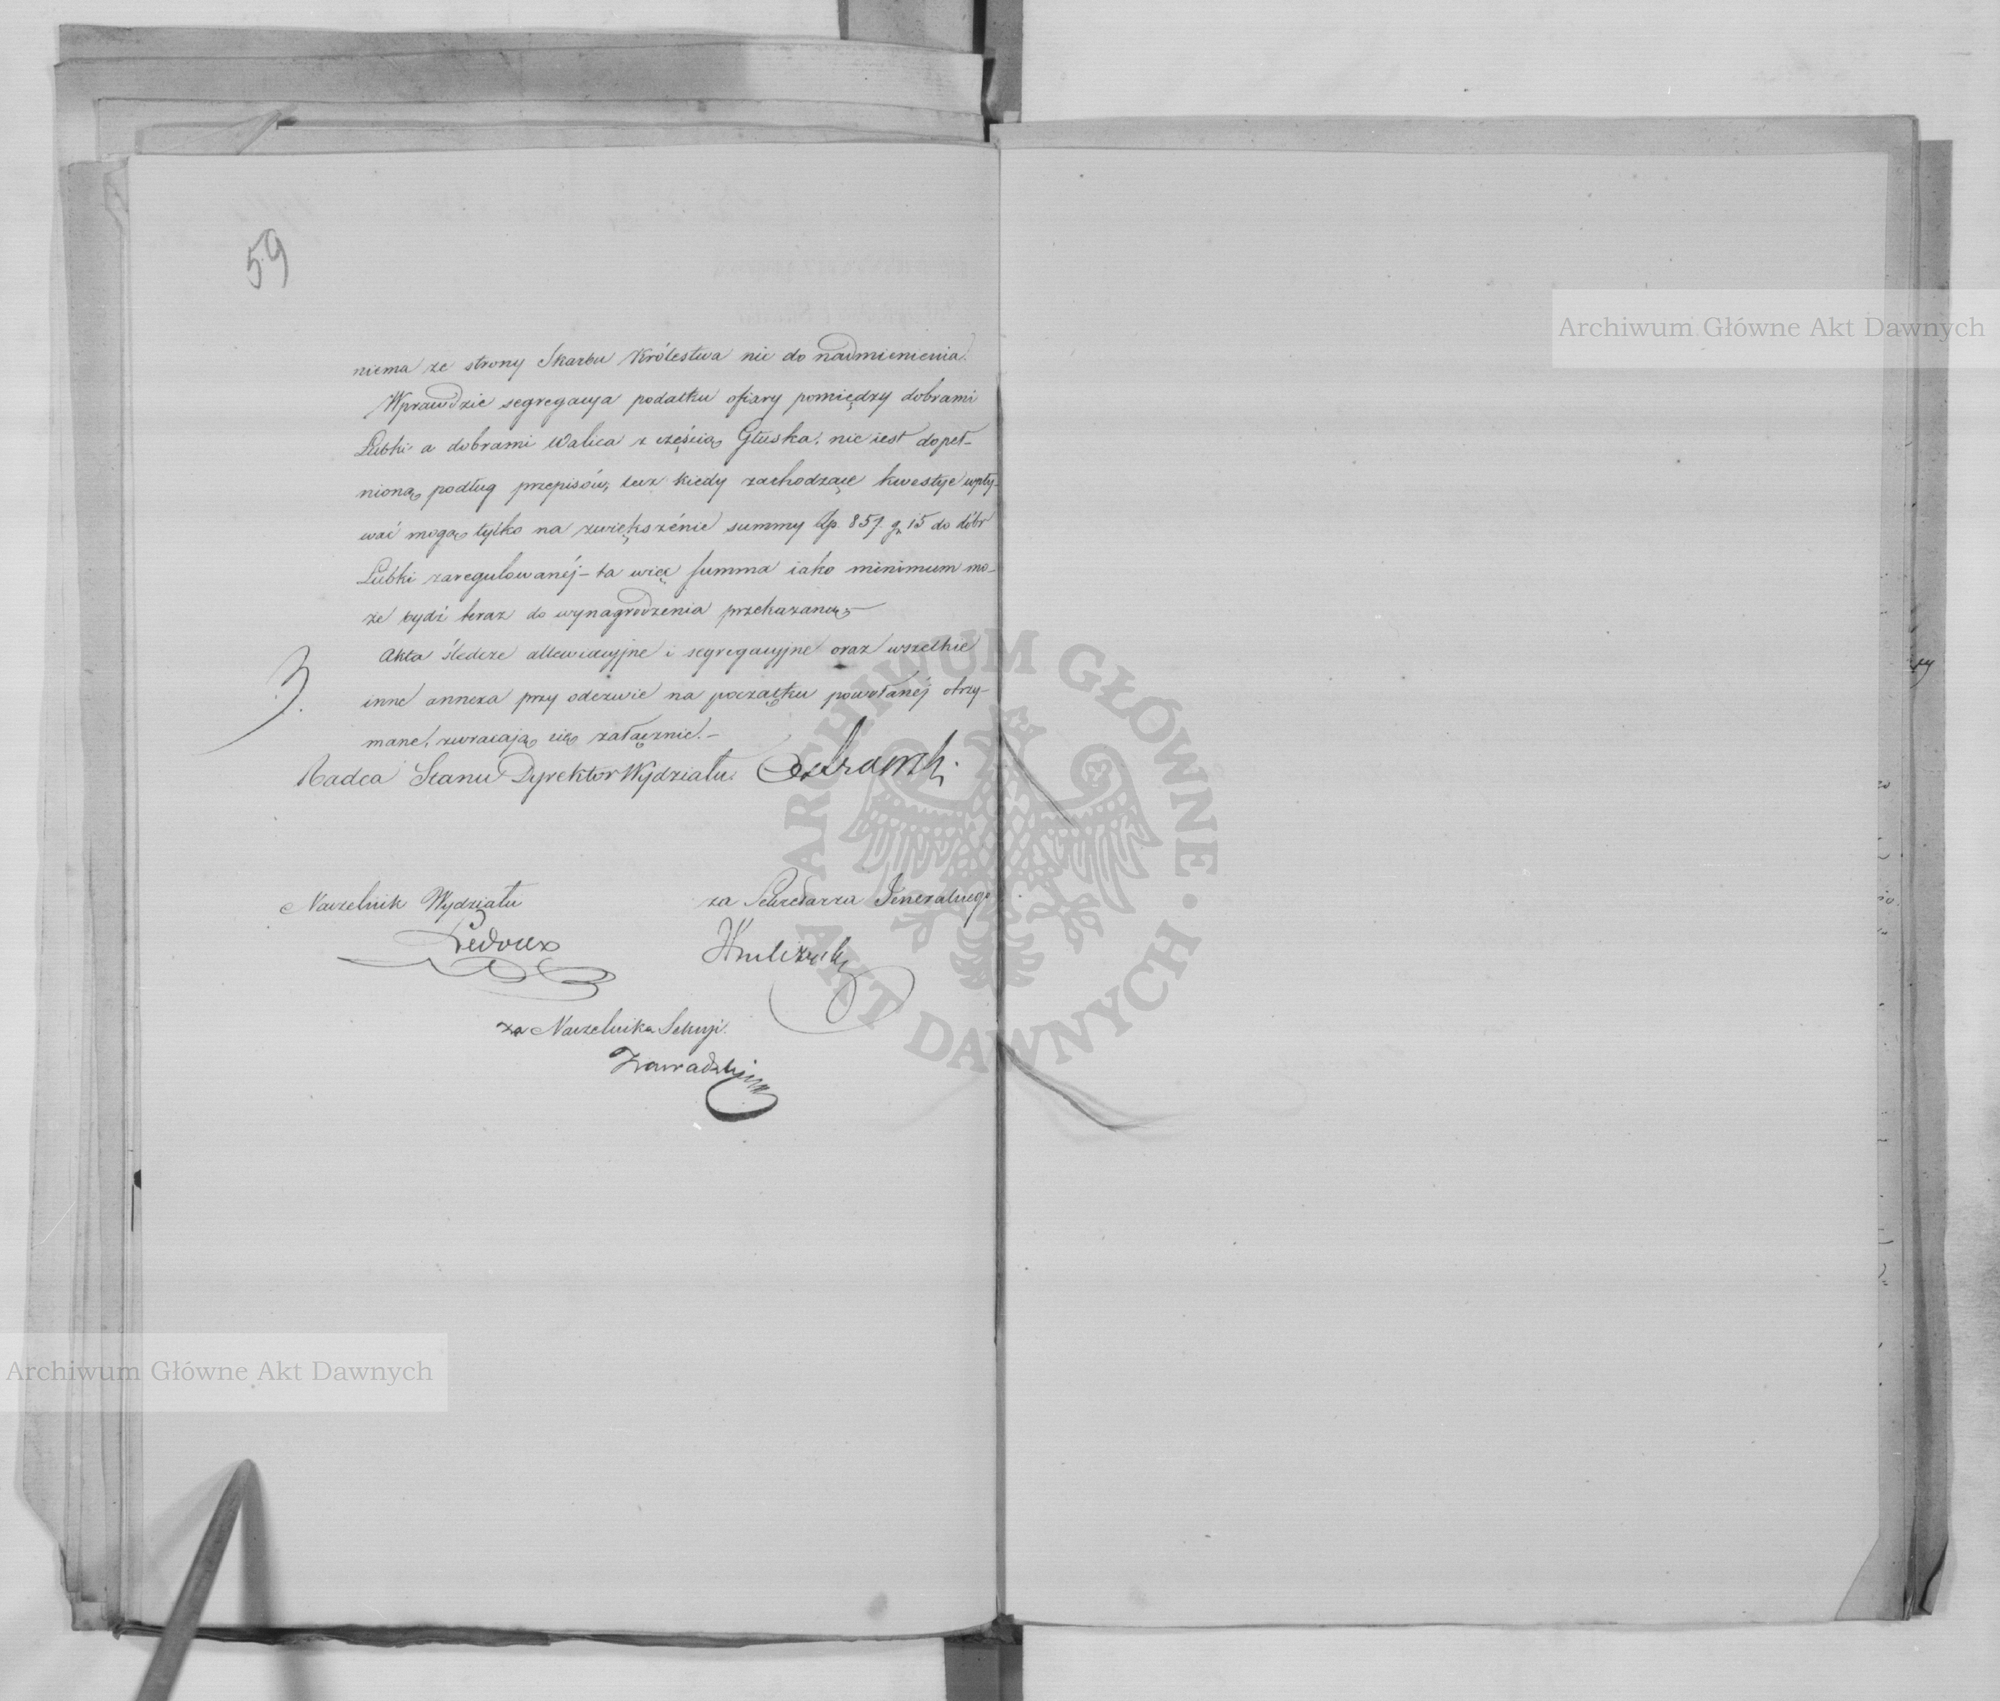 59
niema ze strony Skarbu Królestwa nic do nadmienienia.
Wprawdzie segregacya podatku ofiary pomiędzy dobrami
Lubki a dobrami Walica z częścią Głuska, nie iest dopeł-
nioną podług przepisów, lecz kiedy zachodzące kwestye wpły-
wać mogą tylko na zwiększenie summy Zp. 857. gr 15 do dóbr
Lubki zaregulowanéj – ta więc summa iako minimum mo-
że bydź teraz do wynagrodzenia przekazaną
Akta śledcze allewiacyjne i segregacyjne oraz wszelkie
3.
inne annexa przy odezwie na początku powołanéj otrzy-
mane, zwracają się załącznie. –
Radca Stanu Dyrektor Wydziału
Naczelnik Wydziału
za Sekretarza Jeneralnego
Ledoux
za Naczelnika Sekcyi.
Archiwum Główne Akt Dawnych
Archiwum Główne Akt Dawnych
ARCHIWUM GŁÓWNE AKT DAWNYCH